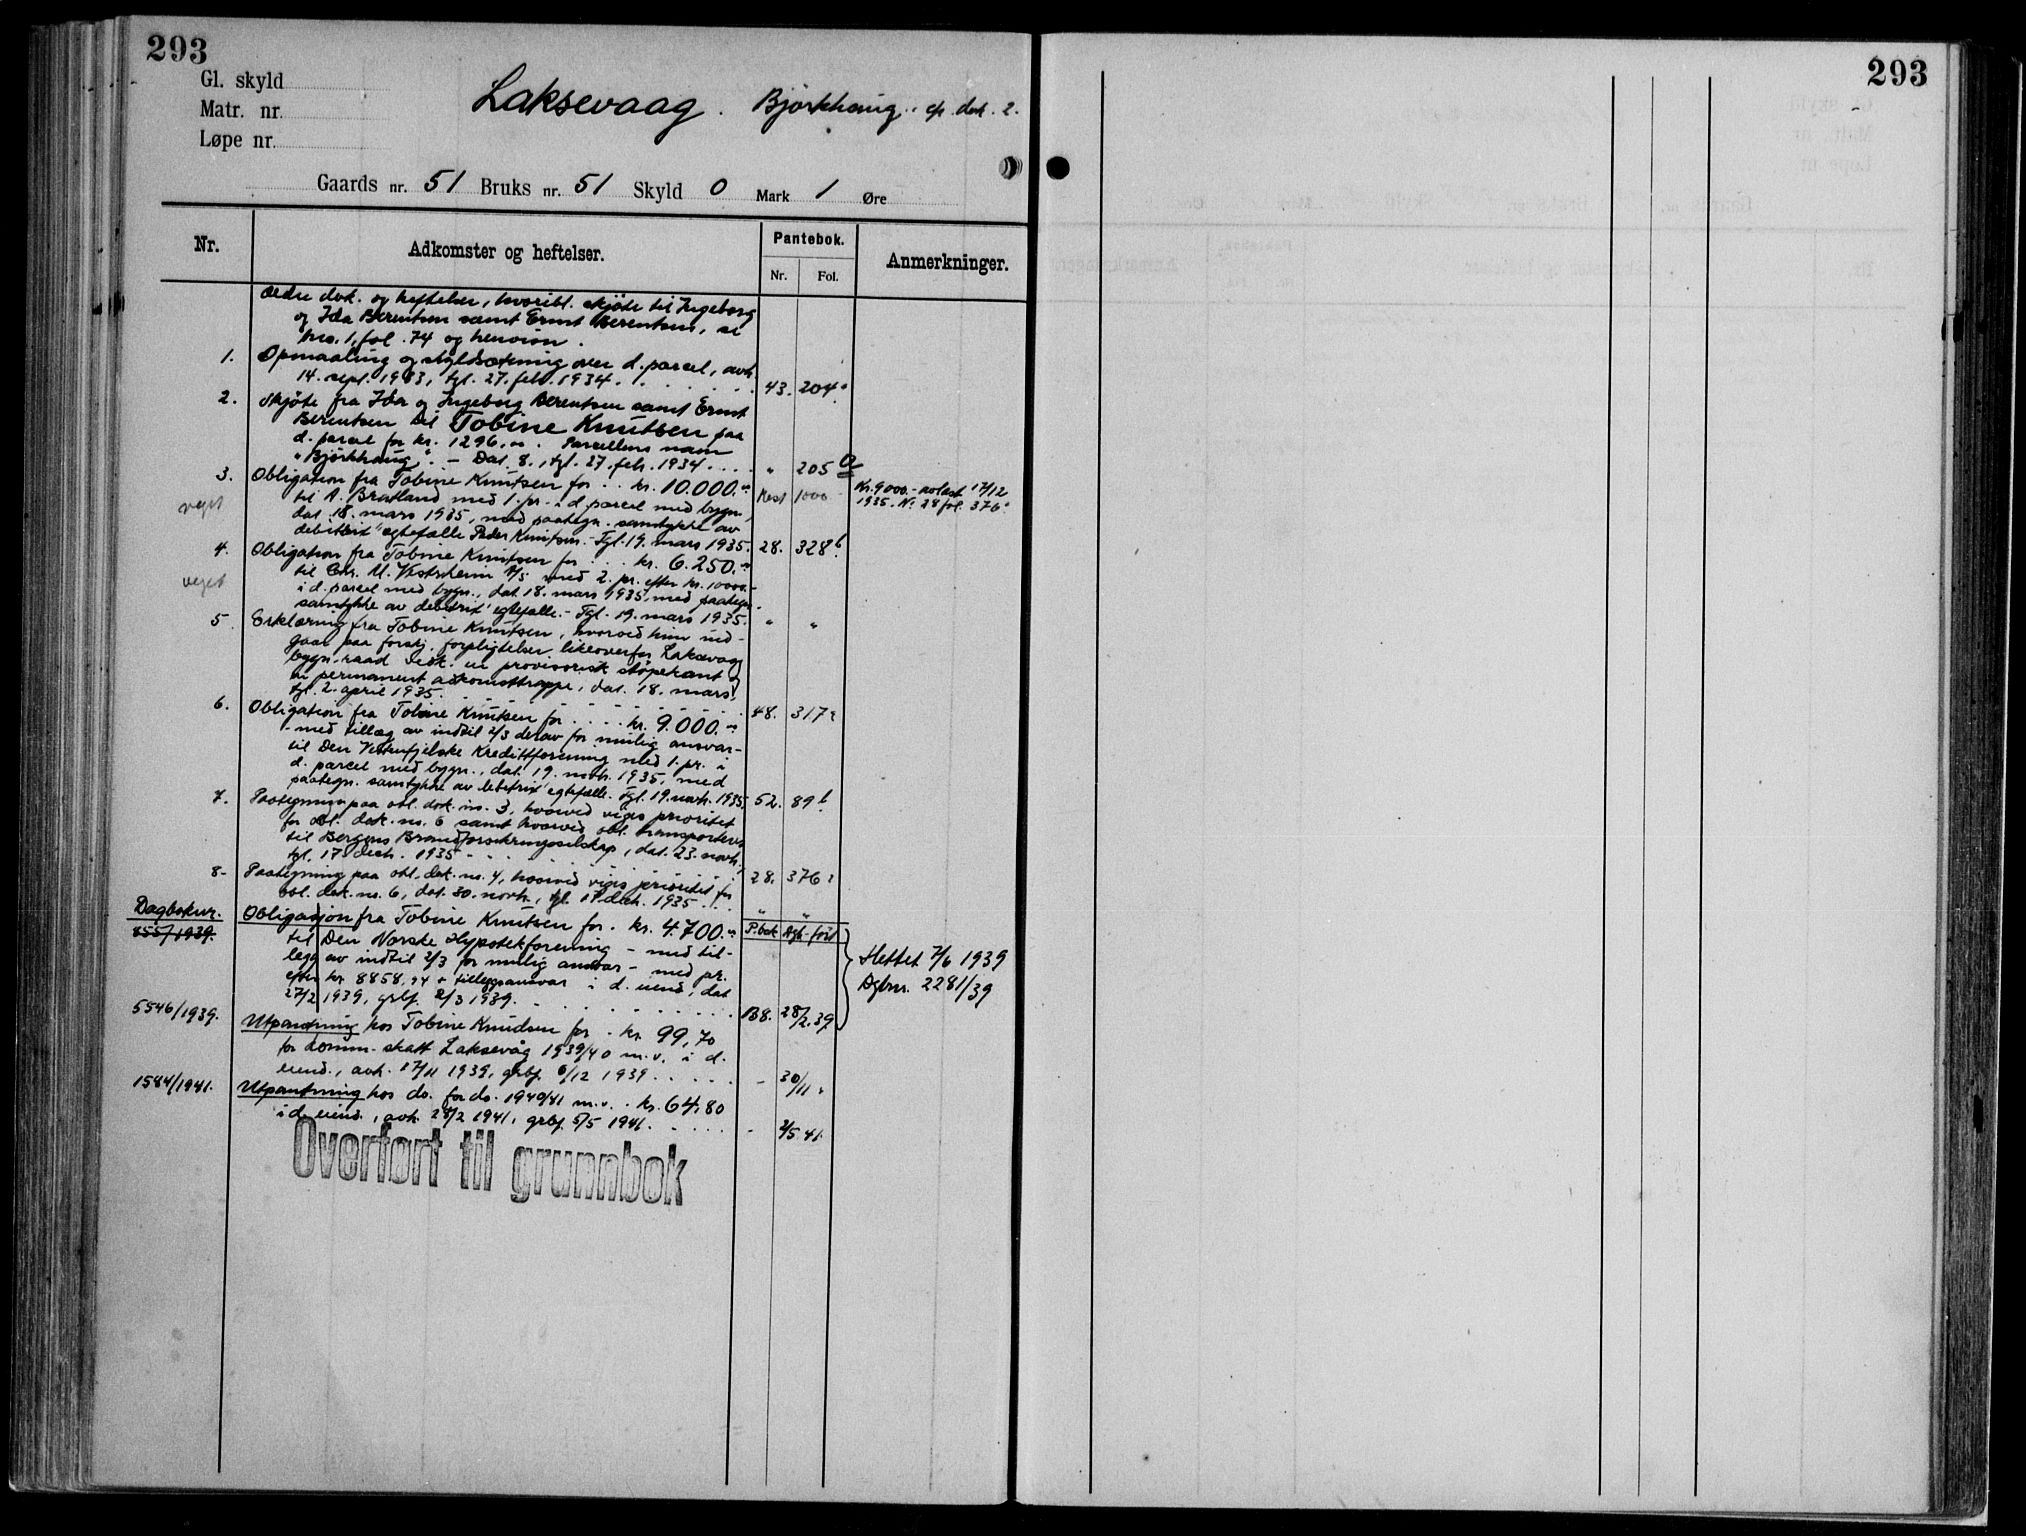 293
293
Gl. skyld
Matr. nr.
Løpe nr.
Laksevaag. Björkhaug. cfr. dok. 2.
Gaards nr. 51 Bruks nr. 51 Skyld 0 Mark 1 Øre
Nr. Adkomster og heftelser. Pantebok. Anmerkninger.
Nr. Fol.
Ældre dok. og heftelser, hvoribl. skjöte til Ingeborg
og Ida Berentsen samt Ernst Berentsen, se
bno. 1, fol. 74 og henvisn.
1. Opmaaling og skyldsætning over d. parcel, avh.
14. sept. 1933, tgl. 27. feb. 1934. 43. 204
2. Skjöte fra Ida og Ingeborg Berentsen samt Ernst
Berentsen til Tobine Knutsen paa
d. parcel for kr. 1296,00. Parcellens navn
"Björkhaug". - Dat. 8., tgl. 27. feb. 1934. " 205
3. Obligation fra Tobine Knutsen for .. kr. 10.000.-
til A. Bratland med 1. pr. i d. parcel med bygn., Rest 1000 Kr. 9000.- avlæst 17/12
veget
dat. 18. mars 1935, med paategn. samtykke av 1935. No 28 fol. 376
debitrix' egtefælle Peder Knutsen. - Tgl. 19. mars 1935. 28. 328b
4. Obligation fra Tobine Knutsen for ... kr. 6.250.-
til Chr. M. Vestrheim A/S med 2. pr. efter kr. 10000.-
veget
i d. parcel med bygn., dat. 18. mars 1935, med paategn.
samtykke av debitrix' egtefælle. - Tgl. 19. mars 1935. " "
5. Erklæring fra Tobine Knutsen, hvorved hun ind-
gaar paa forskj. forpligtelser likeoverfor Laksevaag
bygn.raad vedk. en provisorisk støpekant og
en permanent adkomsttrappe, dat. 18. mars,
tgl. 2. april 1935. 48. 317
6. Obligation fra Tobine Knutsen for .... kr. 9.000.-
- med tillæg av indtil 2/3 derav for mulig ansvar -
til Den Vestenfjelske Kredittforening med 1. pr. i
d. parcel med bygn., dat. 19. novb. 1935, med
paategn. samtykke av debitrix' egtefælle. Tgl. 19. novb. 1935. 52. 89b
7. Paategning paa obl. dok. no. 3, hvorved viges prioritet
for obl. dok. no. 6 samt hvorved obl. transporteres
til Bergens Brandforsikringsselskap, dat. 23. novb.
tgl. 17. decb. 1935 28. 376
8- Paategning paa obl. dok. no. 4, hvorved viges prioritet for
obl. dok. no. 6, dat. 30. novb., tgl. 17 decb. 1935 " "
Dagboknr.
855/1939. Obligasjon fra Tobine Knutsen for . kr. 4700.- P.bok Dgb. ført
til Den Norske Hypotekforening - med til-
legg av indtil 2/3 for mulig ansvar - med pr.
efter kr. 8858,94 + tilleggsansvar i d. eiend., dat.
27/2 1939, grbf. 2/3 1939. B8. 28/2.39
Slettet 7/6 1939
Dgbnr. 2281/39
5546/1939. Utpantning hos Tobine Knudsen for . kr. 99,70
for komm. skatt Laksevåg 1939/40 m.v. i d.
eiend., avh. 17/11 1939, grbf. 6/12 1939 - 30/11 "
1584/1941. Utpantning hos do. for do. 1940/41 m.v. . kr. 64,80
i d. eiend., avh. 28/2 1941, grbf. 5/5 1941. - 2/5.41.
Overført til grunnbok